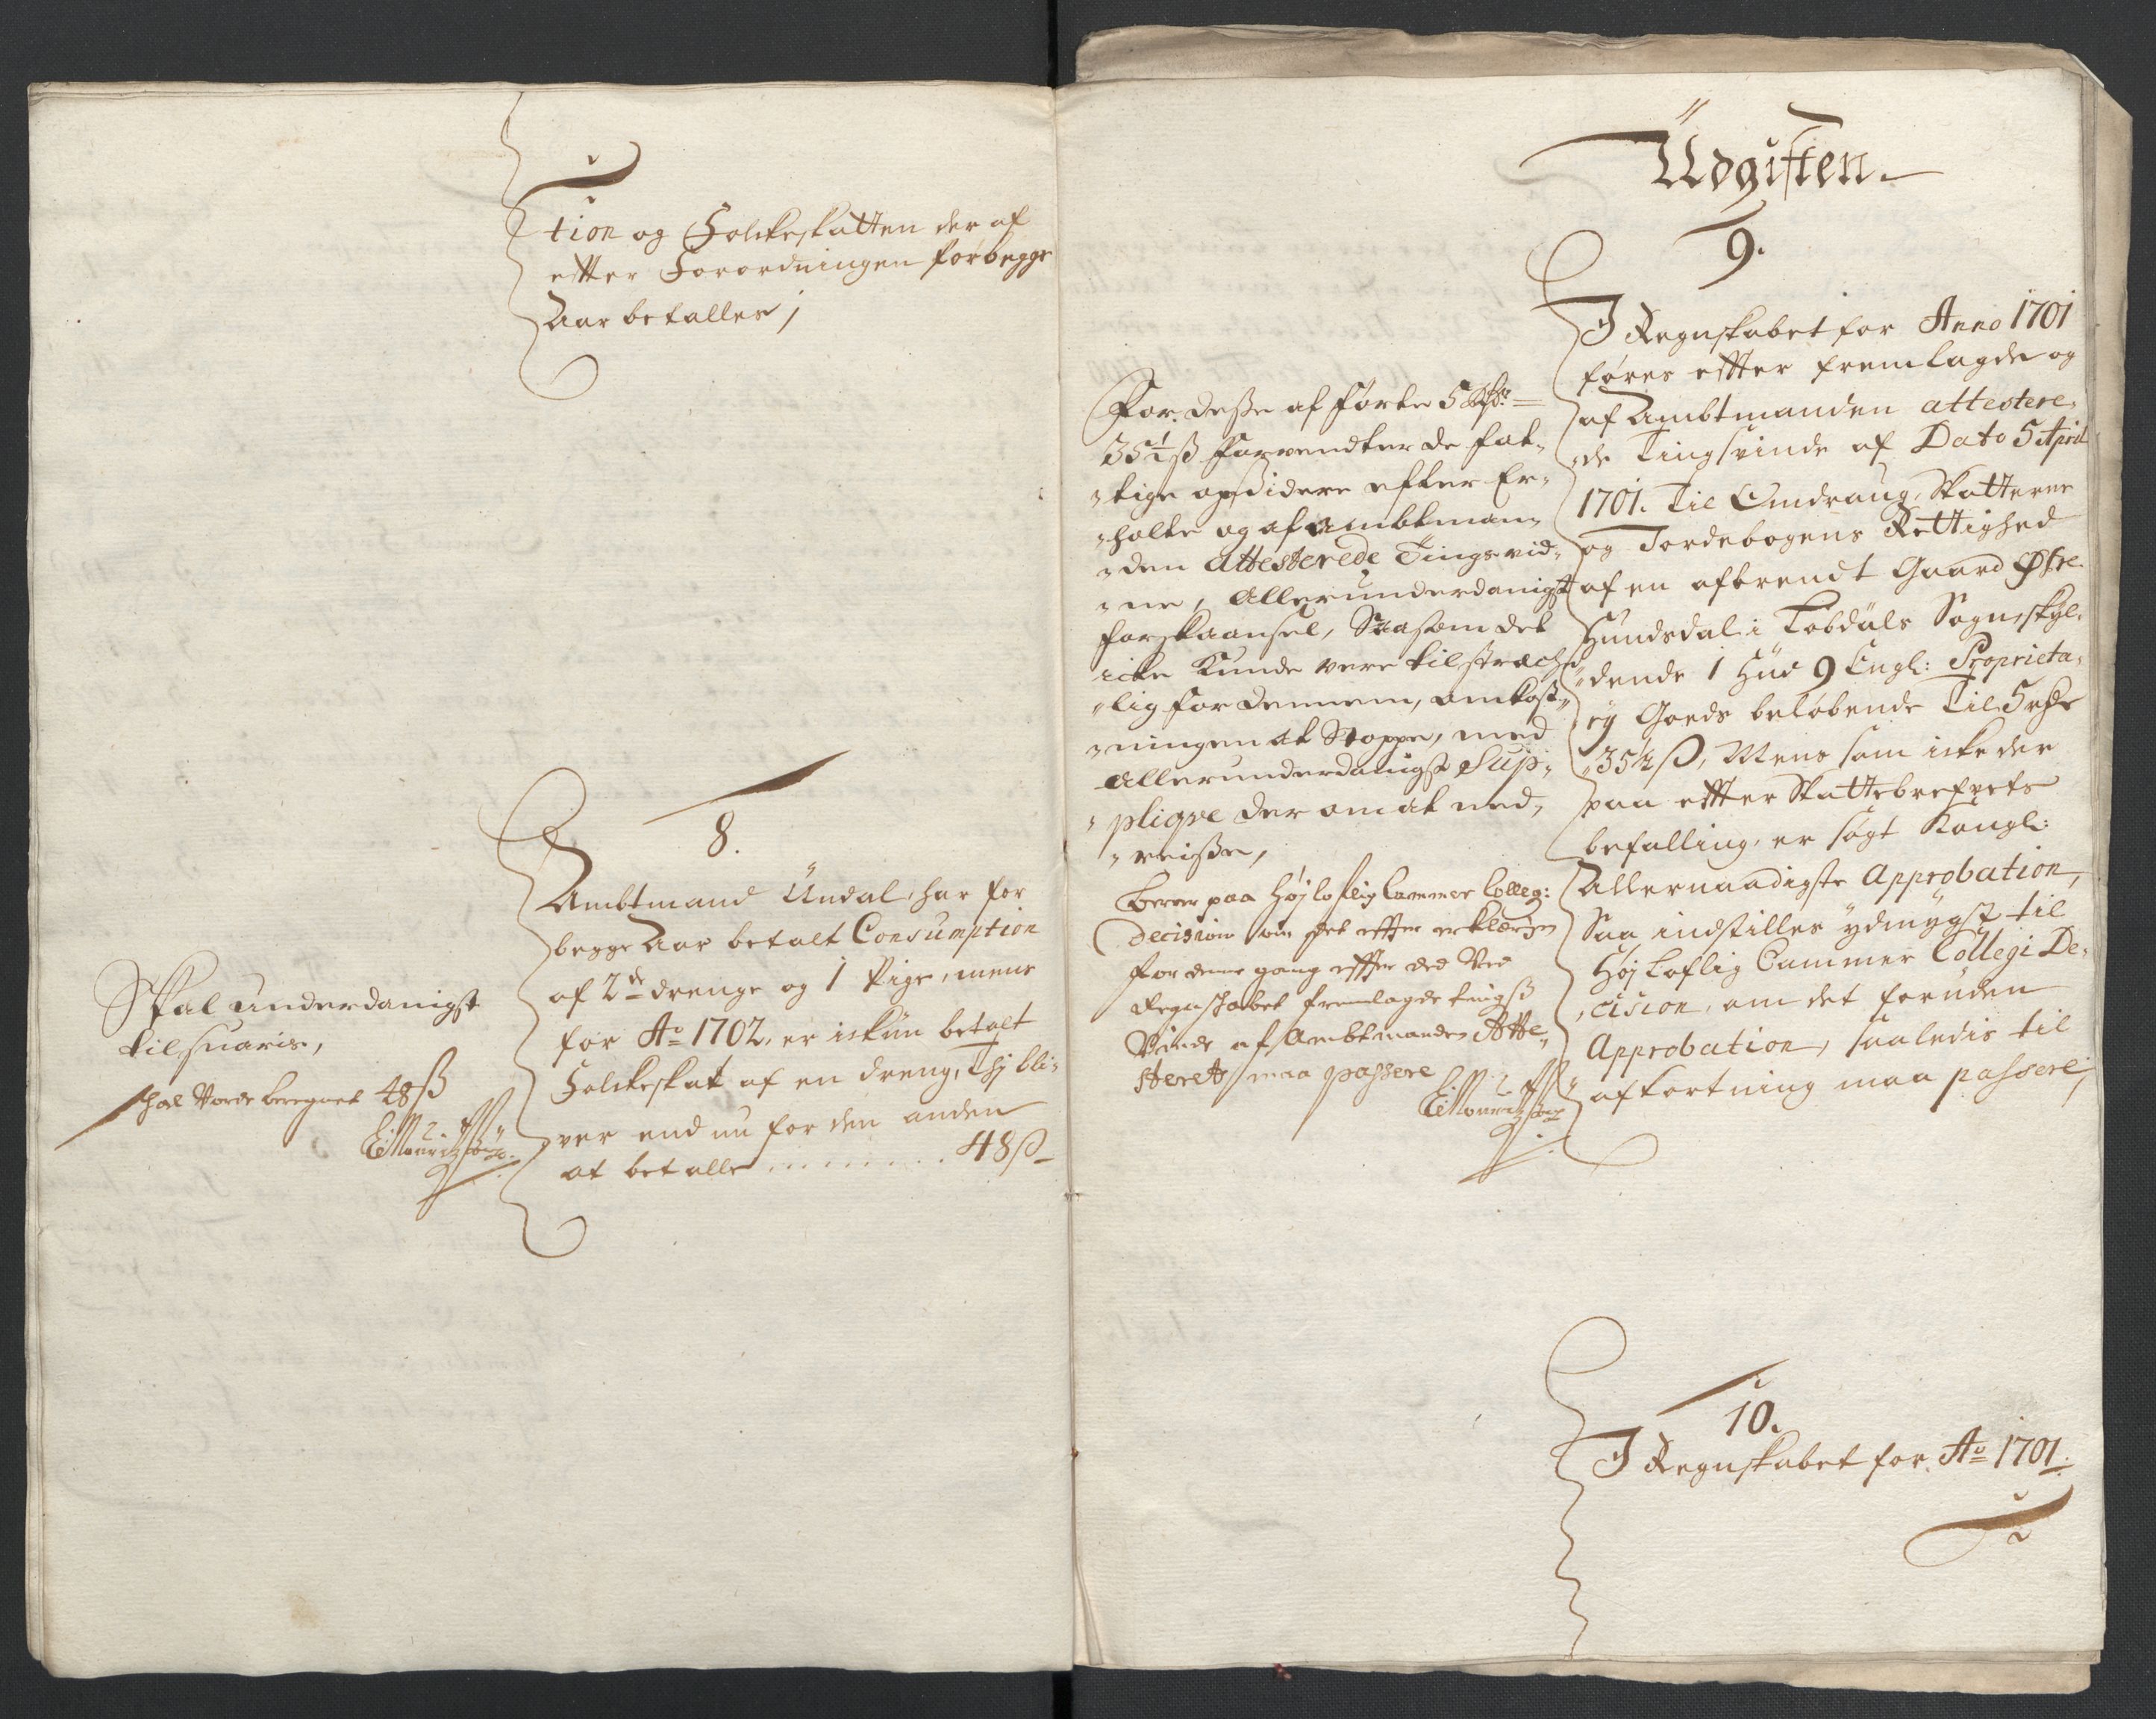 tion og Folckeskatten der af
effter Forordningen for begge
Aar betaller;
8.
Ambtmand Undal har for
begge Aar betalt Consumption
af 2de drenge og 1 Pige, mens
for Ao 1702, er ickun betalt
Folckeskat af en dreng, Thj bli,
ver end nu for den anden
at betalle ......... 48 ß
Skal underdanigst
tilsuaris,
schal Vorde beregnet 48 ß
Udgiften.
9.
I Regnskabet for Anno 1701
føres effter fremlagde og
af Ambtmanden attestere,
,de Tingsvinde af Dato 5 April
1701. Til Omdraug, Skatterne
og Jordebogens Rettighed
af en afbrendt Gaard Østre
Hundsdal i Tobdals Sogn, skyl,
,dende 1 Hud 9 Engl: Proprieta,
ry Goeds beløbende Til 5 rdr
35½ ß, Mens som icke der
paa effter Skattebrefvets
befalling, er søgt Kongl:
Allernaadigste Approbation,
Saa indstilles ydmygst til
Høj Loflig Cammer Collegi De,
,cision, om det foruden
Approbation, saaledis til
afkortning maa passere,
For. desse af førte 5 rdr
35½ ß forvendter de fat,
,tige opsidere efter Er,
,holte og af ambtman,
,den Attesterede Tingsvid,
,ne, Allerunderdanigst
forskaansel, Saasom det
icke Kunde vere tilstræch,
,lig for dennem, omkost,
,ningen at Stoppe, med
Allerunderdanigst Sup,
,plique der om at ned,
,veisse,
Beror paa Højloflig Cammer Colleg:
Decision om det effter erklæringen
for denne gang effter det Ved
Regnschabet fremlagde tingß
Vinde af Ambtmanden Atte,
stered maa passere
10.
I Regnskabet for Ao 1701.